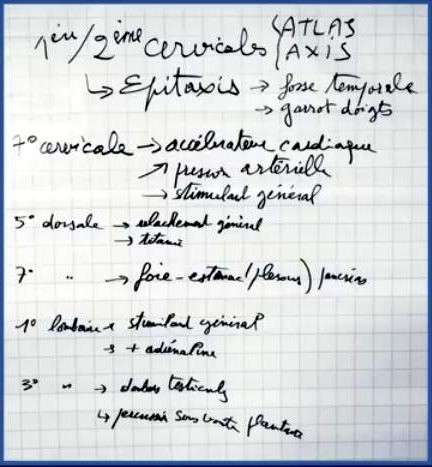 1ère/2ème cervicales { ATLAS
AXIS
↳ Epitaxis → fosse temporale
→ garrot doigts
7° cervicale → accélérateur cardiaque
↗ pression artérielle
→ stimulant général
5° dorsale → relâchement général
→ tétanie
7° " → foie - estomac (plexus) pancréas
1° lombaire → stimulant général
→ + adrénaline
3° " → douleurs testicules
↳ percussion sous voûte plantaire